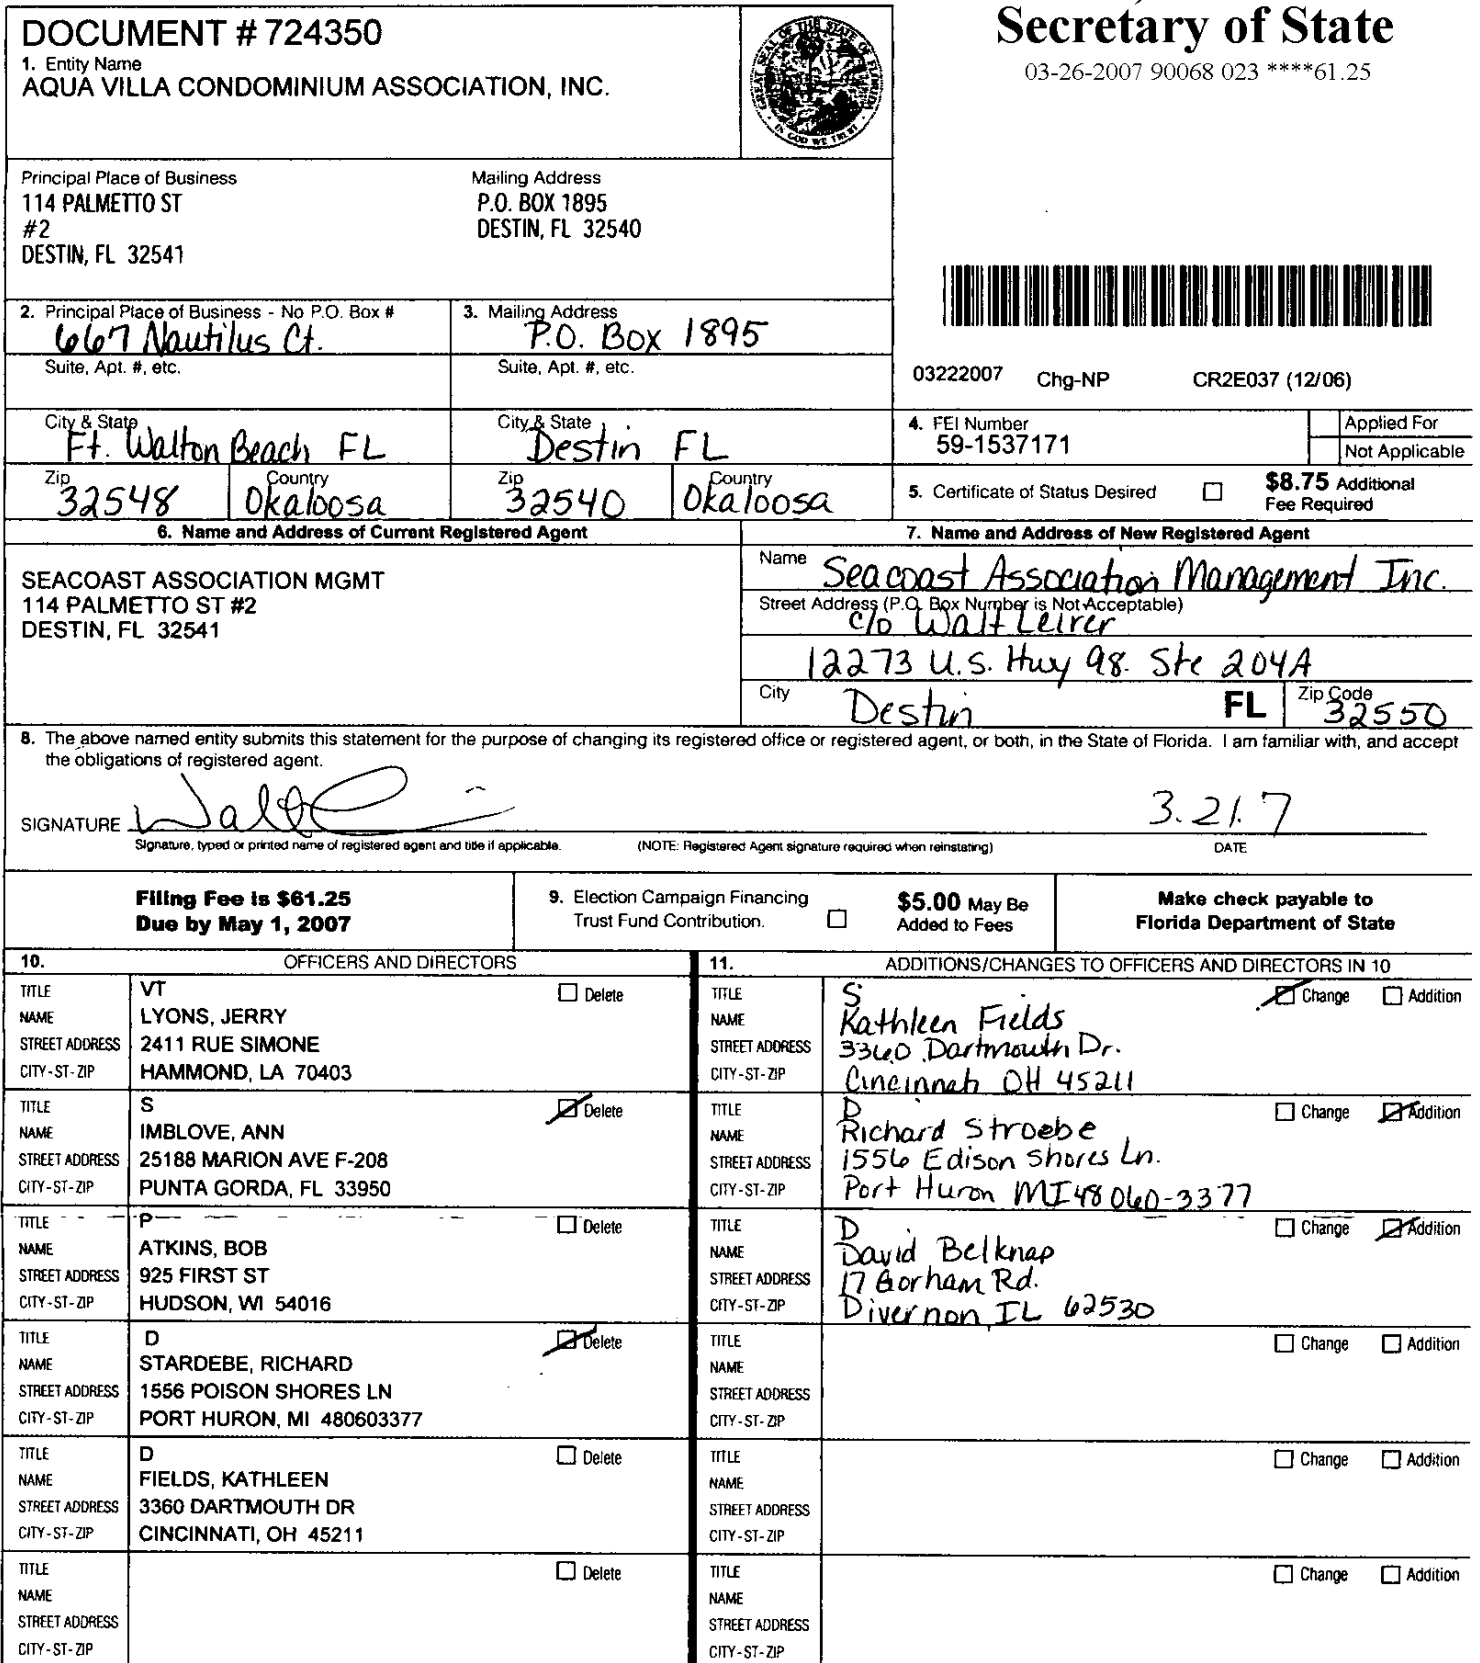 DOCUMENT # 724350
1. Entity Name
AQUA VILLA CONDOMINIUM ASSOCIATION, INC.
GREAT SEAL OF THE STATE OF FLORIDA
IN GOD WE TRUST
Secretary of State
03-26-2007 90068 023 ****61.25
Principal Place of Business
114 PALMETTO ST
#2
DESTIN, FL 32541
Mailing Address
P.O. BOX 1895
DESTIN, FL 32540
2. Principal Place of Business - No P.O. Box #
667 Nautilus Ct.
3. Mailing Address
P.O. Box 1895
Suite, Apt. #, etc.
Suite, Apt. #, etc.
03222007 Chg-NP CR2E037 (12/06)
City & State
Ft. Walton Beach FL
City & State
Destin FL
4. FEI Number
59-1537171
Applied For
Not Applicable
Zip
32548
Country
Okaloosa
Zip
32540
Country
Okaloosa
5. Certificate of Status Desired
$8.75 Additional
Fee Required
6. Name and Address of Current Registered Agent
SEACOAST ASSOCIATION MGMT
114 PALMETTO ST #2
DESTIN, FL 32541
7. Name and Address of New Registered Agent
Name Seacoast Association Management Inc.
Street Address (P.O. Box Number is Not Acceptable)
c/o Walt Leirer
12273 U.S. Hwy 98. Ste 204A
City Destin FL Zip Code 32550
8. The above named entity submits this statement for the purpose of changing its registered office or registered agent, or both, in the State of Florida. I am familiar with, and accept
the obligations of registered agent.
SIGNATURE 3.21.7
Signature, typed or printed name of registered agent and title if applicable. (NOTE: Registered Agent signature required when reinstating) DATE
Filing Fee is $61.25
Due by May 1, 2007
9. Election Campaign Financing
Trust Fund Contribution.
$5.00 May Be
Added to Fees
Make check payable to
Florida Department of State
10. OFFICERS AND DIRECTORS
TITLE VT Delete
NAME LYONS, JERRY
STREET ADDRESS 2411 RUE SIMONE
CITY-ST-ZIP HAMMOND, LA 70403
TITLE S Delete
NAME IMBLOVE, ANN
STREET ADDRESS 25188 MARION AVE F-208
CITY-ST-ZIP PUNTA GORDA, FL 33950
TITLE P Delete
NAME ATKINS, BOB
STREET ADDRESS 925 FIRST ST
CITY-ST-ZIP HUDSON, WI 54016
TITLE D Delete
NAME STARDEBE, RICHARD
STREET ADDRESS 1556 POISON SHORES LN
CITY-ST-ZIP PORT HURON, MI 480603377
TITLE D Delete
NAME FIELDS, KATHLEEN
STREET ADDRESS 3360 DARTMOUTH DR
CITY-ST-ZIP CINCINNATI, OH 45211
TITLE Delete
NAME
STREET ADDRESS
CITY-ST-ZIP
11. ADDITIONS/CHANGES TO OFFICERS AND DIRECTORS IN 10
TITLE S Change Addition
NAME Kathleen Fields
STREET ADDRESS 3360 Dartmouth Dr.
CITY-ST-ZIP Cincinnati OH 45211
TITLE D Change Addition
NAME Richard Stroebe
STREET ADDRESS 1556 Edison Shores Ln.
CITY-ST-ZIP Port Huron MI 48060-3377
TITLE D Change Addition
NAME David Belknap
STREET ADDRESS 17 Gorham Rd.
CITY-ST-ZIP Divernon, IL 62530
TITLE Change Addition
NAME
STREET ADDRESS
CITY-ST-ZIP
TITLE Change Addition
NAME
STREET ADDRESS
CITY-ST-ZIP
TITLE Change Addition
NAME
STREET ADDRESS
CITY-ST-ZIP